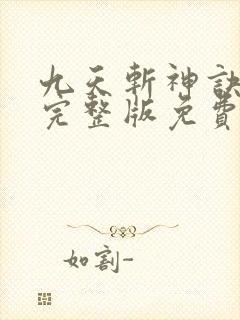 九天斬神訣
完整版免費
如割-